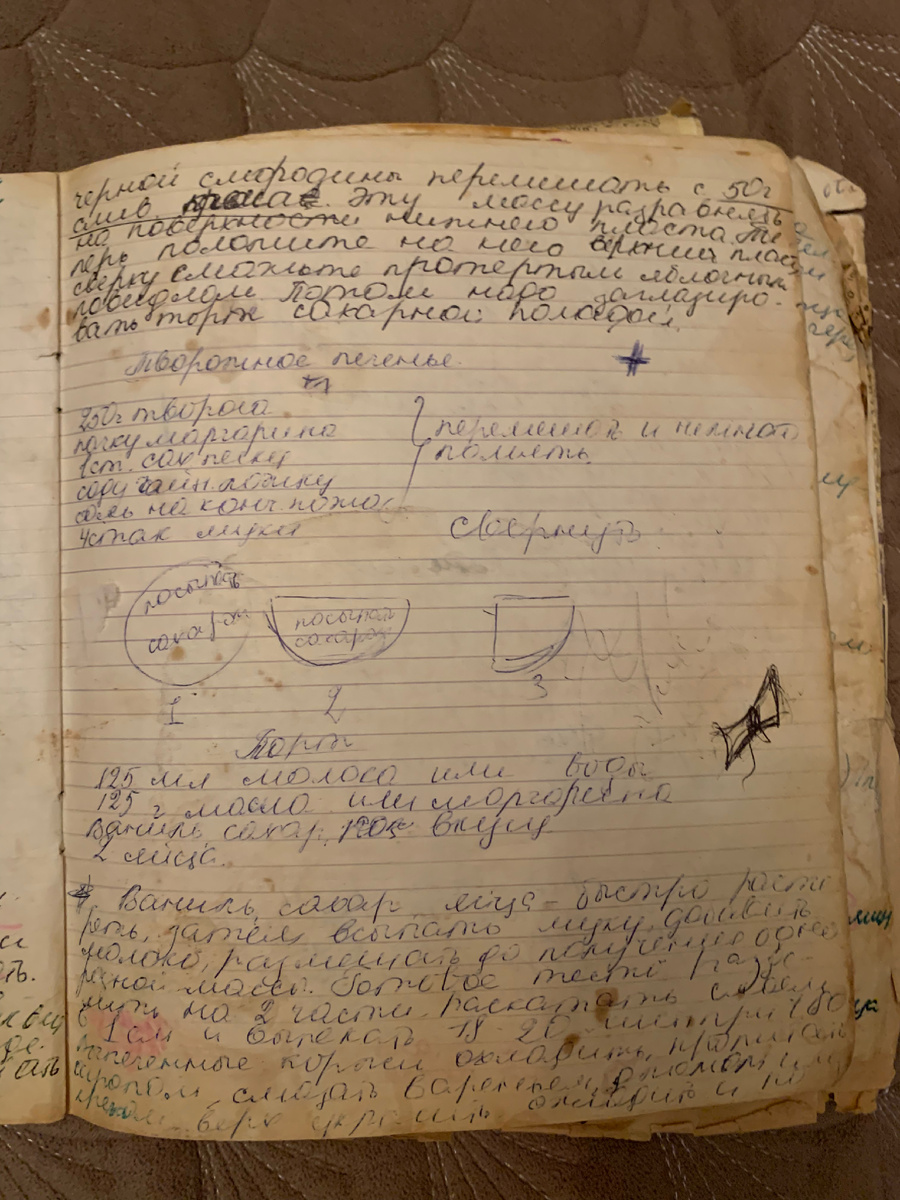 черной смородины перемешать с 50г
слив. масла. Эту массу разравнять
на поверхности нижнего пласта. Те
перь положите на него верхний пласт
сверху смажьте протертым яблочным
повидлом. Потом надо заглазиро-
вать торт сахарной помадой.
Творожное печенье.
250г творога
пачку маргарина
1ст. сах песку
соду чайн. ложку
соль на конч. ножа
4стак муки
перемешать и немного
помять.
Свернуть
посыпать
сахаром
посыпать
сахаром
1
2
3
Торт
125 мл молока или воды
125 г масла или маргарина
Ваниль, сахар, вкуцу
2 яйца.
Ваниль, сахар, яйца - быстро расте
реть, затем всыпать муку, добавить
молоко, размешать до получения одно
родной массы. Готовое тесто разде-
лить на 2 части, раскатать слоем
в 1 см и выпекать 18-20 при 180
Выпеченные коржи охладить, пропитать
сиропом, смазать вареньем, или
кремом, верх украсить